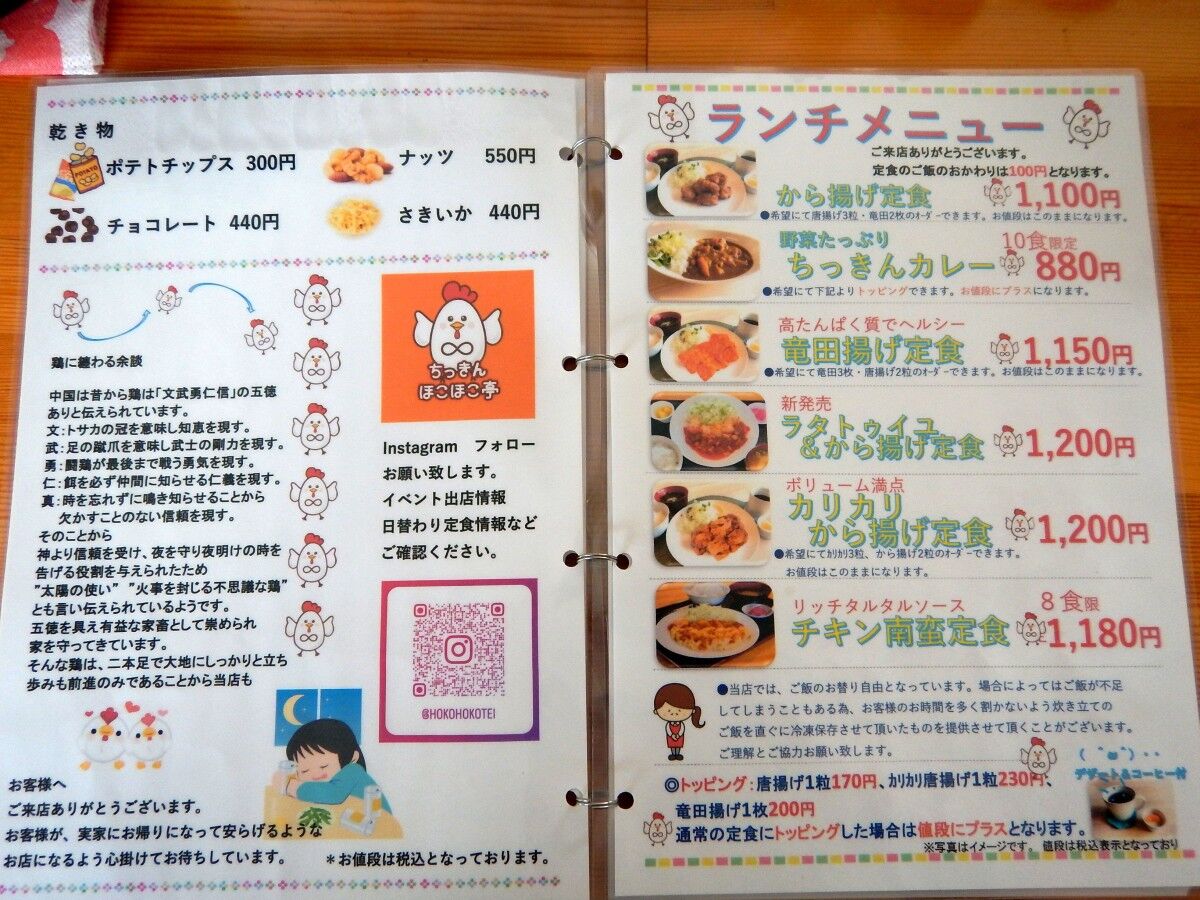 乾き物
ポテトチップス 300円
ナッツ 550円
チョコレート 440円
さきいか 440円
POTATO
鶏に纏わる余談
中国は昔から鶏は「文武勇仁信」の五徳
ありと伝えられています。
文:トサカの冠を意味し知恵を現す。
武:足の蹴爪を意味し武士の剛力を現す。
勇:闘鶏が最後まで戦う勇気を現す。
仁:餌を必ず仲間に知らせる仁義を現す。
真:時を忘れずに鳴き知らせることから
欠かすことのない信頼を現す。
そのことから
神より信頼を受け、夜を守り夜明けの時を
告げる役割を与えられたため
”太陽の使い” ”火事を封じる不思議な鶏”
とも言い伝えられているようです。
五徳を具え有益な家畜として崇められ
家を守ってきています。
そんな鶏は、二本足で大地にしっかりと立ち
歩みも前進のみであることから当店も
ちっきん
ほこほこ亭
Instagram フォロー
お願い致します。
イベント出店情報
日替わり定食情報など
ご確認ください。
@HOKOHOKOTEI
お客様へ
ご来店ありがとうございます。
お客様が、実家にお帰りになって安らげるような
お店になるよう心掛けてお待ちしています。
＊お値段は税込となっております。
ランチメニュー
ご来店ありがとうございます。
定食のご飯のおかわりは100円となります。
から揚げ定食 1,100円
●希望にて唐揚げ3粒・竜田2枚のオーダーできます。お値段はこのままになります。
野菜たっぷり 10食限定
ちっきんカレー 880円
●希望にて下記よりトッピングできます。お値段にプラスになります。
高たんぱく質でヘルシー
竜田揚げ定食 1,150円
●希望にて竜田3枚・唐揚げ2粒のオーダーできます。お値段はこのままになります。
新発売
ラタトゥイユ
＆から揚げ定食 1,200円
ボリューム満点
カリカリ
から揚げ定食 1,200円
●希望にてカリカリ3粒、から揚げ2粒のオーダーできます。
お値段はこのままになります。
リッチタルタルソース 8食限
チキン南蛮定食 1,180円
●当店では、ご飯のお替り自由となっています。場合によってはご飯が不足
してしまうこともある為、お客様のお時間を多く割かないよう炊き立ての
ご飯を直ぐに冷凍保存させて頂いたものを提供させて頂くことがございます。
ご理解とご協力お願い致します。
( ＾ω＾)・・
デザート＆コーヒー付
◎トッピング：唐揚げ1粒170円、カリカリ唐揚げ1粒230円、
竜田揚げ1枚200円
通常の定食にトッピングした場合は値段にプラスとなります。
※写真はイメージです。 値段は税込表示となっており